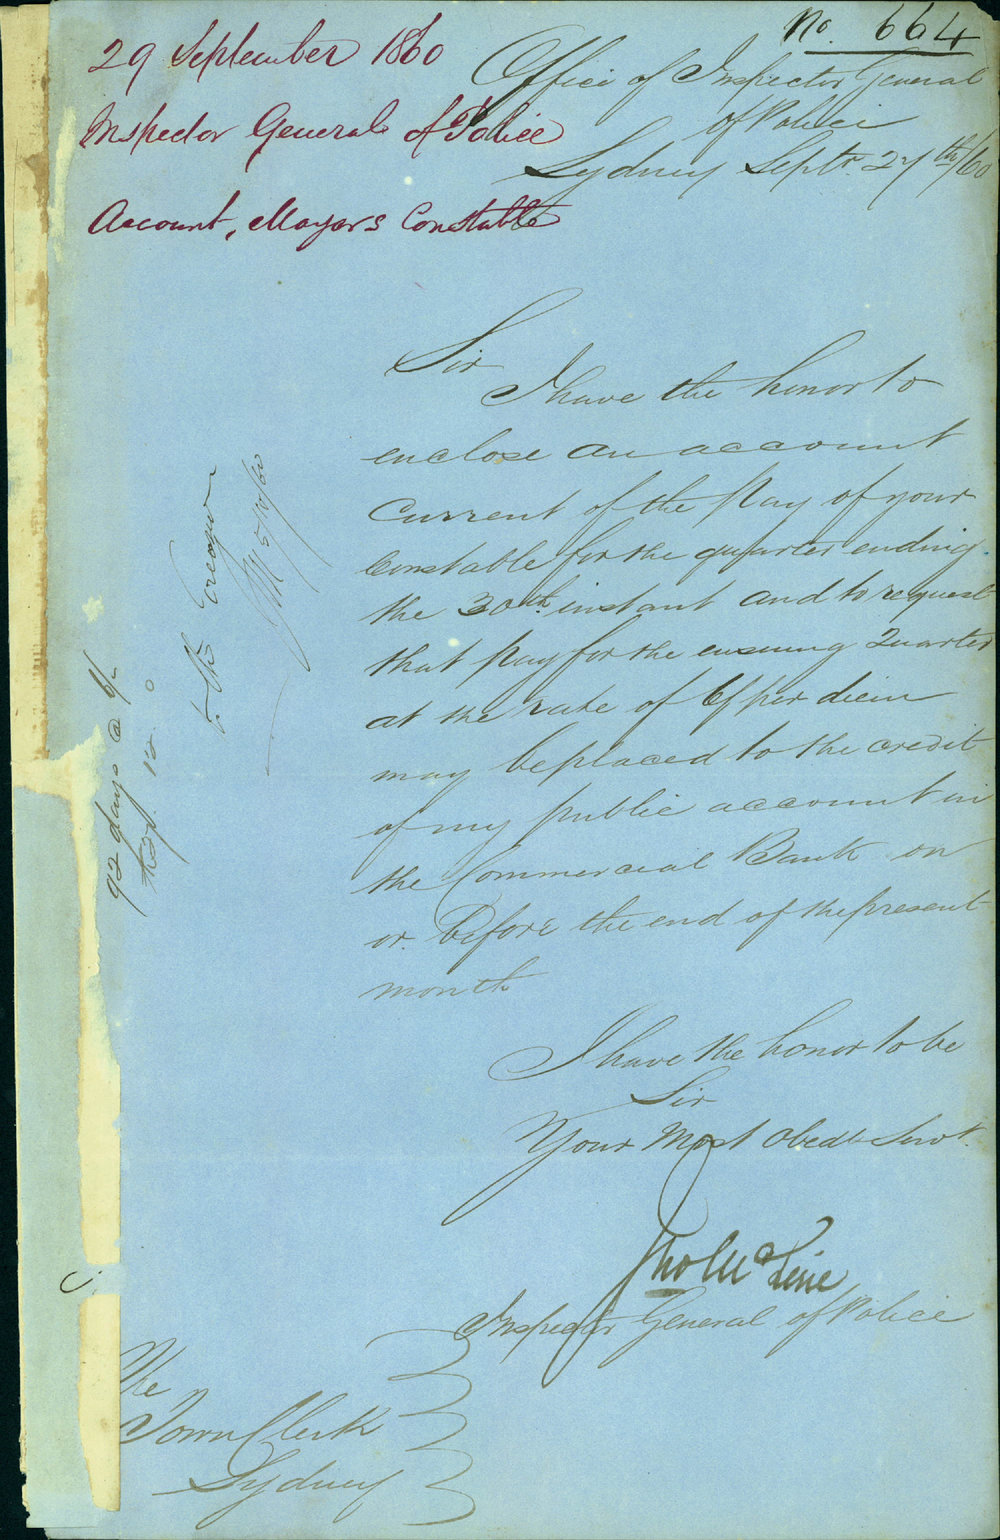 No. 664
29 September 1860
Inspector General of Police
Account, Mayors Constable
Office of Inspector General
of Police
Sydney Septr. 27th/60
Sir
I have the honor to
enclose an account
current of the pay of your
Constable for the quarter ending
the 30th instant and to request
that pay for the ensuing Quarter
at the rate of 6/ per diem
may be placed to the credit
of my public account in
the Commercial Bank on
or before the end of the present
month
I have the honor to be
Sir
Your Most Obedt Servt.
Jno McLerie
Inspector General of Police
The
Town Clerk
Sydney
5/10/60
92 days @ 6/